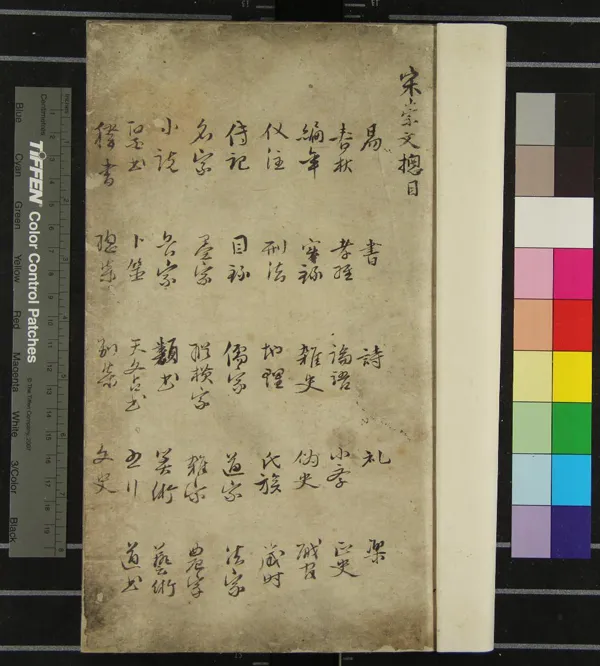 宋崇文摠目
易 書 詩 礼 樂
春秋 孝経 論語 小学 正史
編年 實録 雜史 偽史 職官
仪注 刑法 地理 氏族 歳时
傳記 目録 儒家 道家 法家
名家 墨家 縱横家 雜家 農家
小説 兵家 類書 算術 藝術
醫書 卜筮 天文占書 五行 道書
釋書 總集 别集 文史
Inches
Centimetres
TIFFEN Color Control Patches
© The Tiffen Company, 2007
Blue Cyan Green Yellow Red Magenta White 3/Color Black